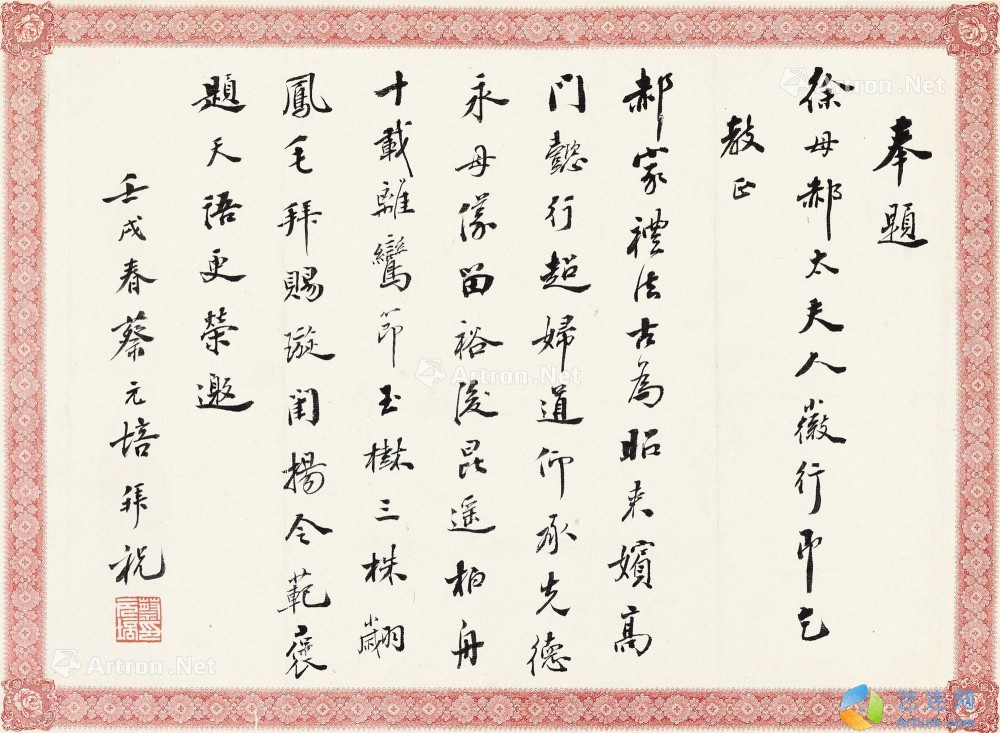 奉題
徐母郝太夫人徽行即乞
教正
郝家禮法古為昭来嬪高
門懿行超婦道仰承先德
永母儀留裕後昆遥柏舟
十載離鸞節玉樹三株翽
鳳毛拜賜璇閨揚令範褒
題天語更榮邀
壬戌春蔡元培拜祝
Artron.Net
Artron.Net
Artron.Net
Artron.Net
艺连网